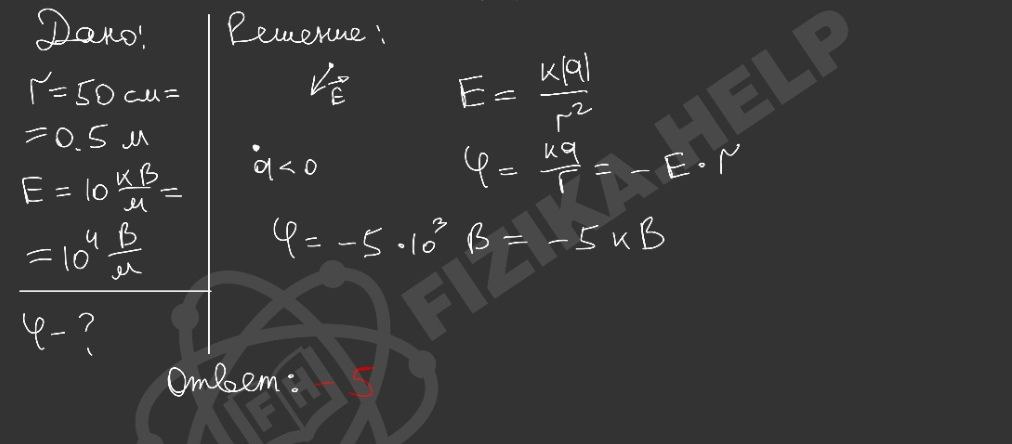 Дано:
r = 50 см =
= 0.5 м
E = 10 кВ/м =
= 10⁴ В/м
φ - ?
Решение:
E
q < 0
E = k|q|/r²
φ = kq/r = - E · r
φ = -5 · 10³ В = -5 кВ
Ответ: -5
FIZIKA.HELP
FH